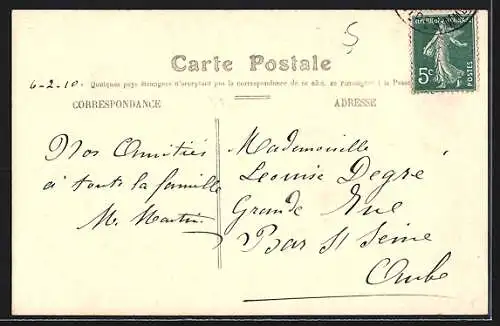 5
Carte Postale
6-2-10
Quelques pays étrangers n'acceptent pas la correspondance de ce côté, se renseigner à la Poste
CORRESPONDANCE
ADRESSE
Nos Amitiés
à toute la famille
M. Martin
Mademoiselle
Leonise Degré
Grande Rue
Bar St Seine
Aube
5c
POSTES